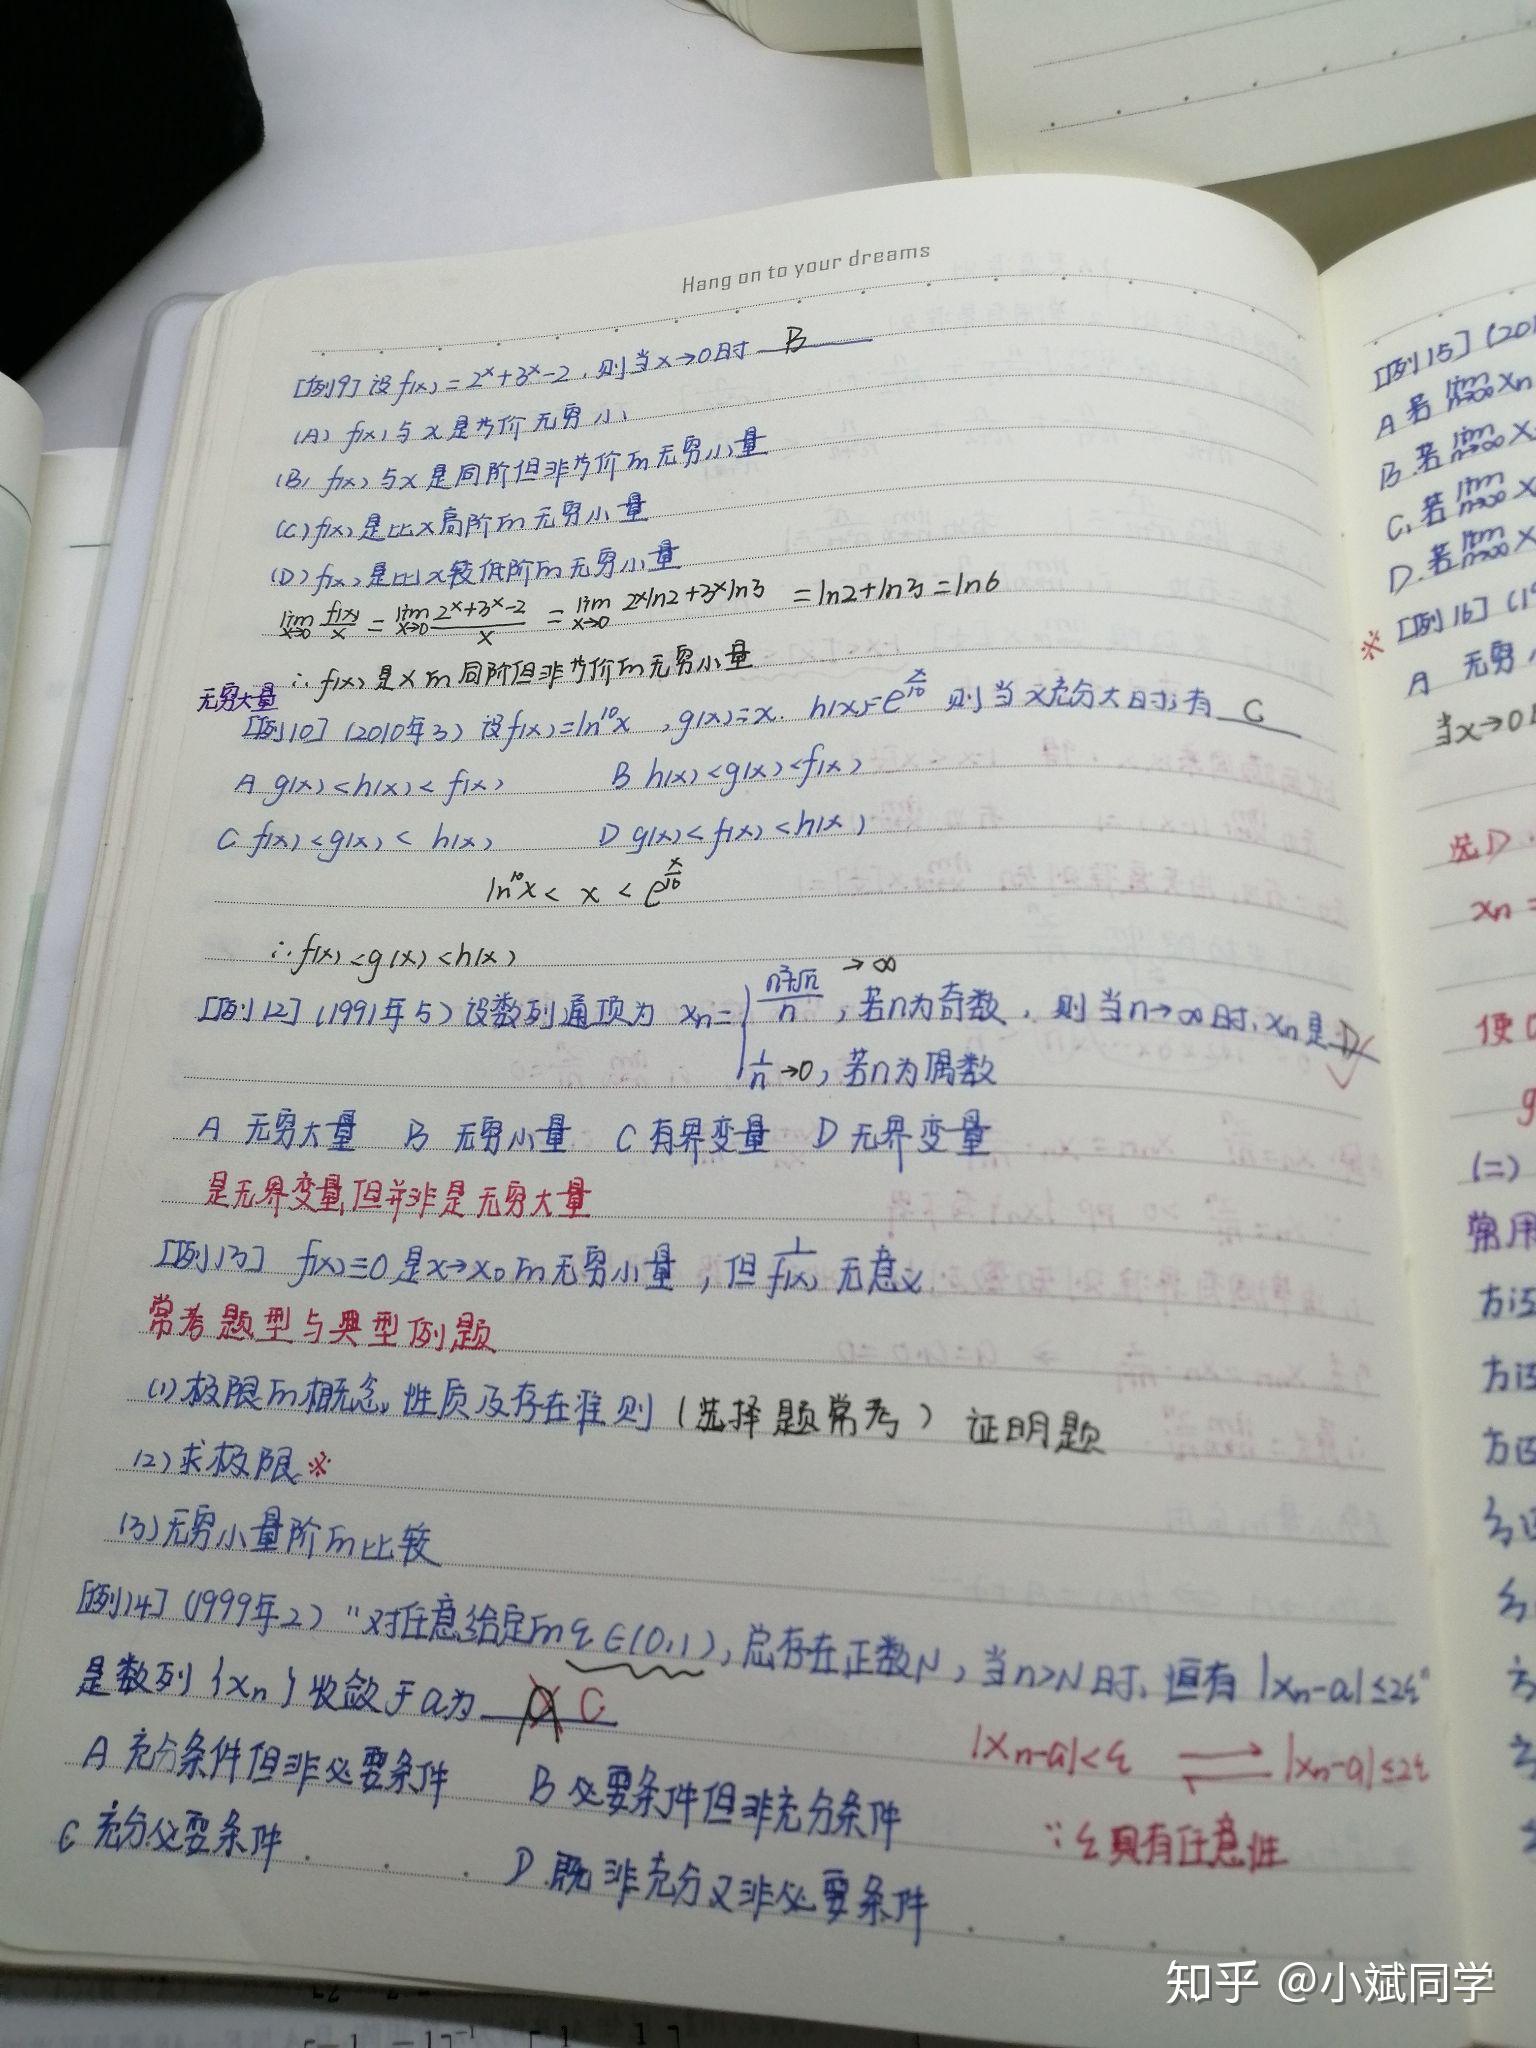 Hang on to your dreams
[例9] 设f(x)=2ˣ+3ˣ-2,则当x→0时 B
(A) f(x)与x是等价无穷小
(B) f(x)与x是同阶但非等价的无穷小量
(C) f(x)是比x高阶的无穷小量
(D) f(x)是比x较低阶的无穷小量
lim x→0 f(x)/x = lim x→0 (2ˣ+3ˣ-2)/x = lim x→0 2ˣln2+3ˣln3 = ln2+ln3 = ln6
∴ f(x)是x的同阶但非等价的无穷小量
无穷大量
[例10] (2010年3) 设f(x)=ln¹⁰x, g(x)=x. h(x)=e^(x/10) 则当x充分大时,有 C
A g(x)<h(x)<f(x) B h(x)<g(x)<f(x)
C f(x)<g(x)<h(x) D g(x)<f(x)<h(x)
ln¹⁰x < x < e^(x/10)
∴ f(x)<g(x)<h(x)
[例12] (1991年5) 设数列通项为 xn= { (n²+√n)/n →∞, 若n为奇数, 则当n→∞时, xn是 D
1/n →0, 若n为偶数
A 无穷大量 B 无穷小量 C 有界变量 D 无界变量
是无界变量,但并非是无穷大量
[例13] f(x)≡0是x→x₀的无穷小量,但 1/f(x) 无意义
常考题型与典型例题
(1)极限的概念,性质及存在准则 (选择题常考) 证明题
(2)求极限※
(3)无穷小量阶的比较
[例14] (1999年2) "对任意给定的ε∈(0,1),总存在正数N,当n>N时,恒有|xn-a|≤2ε"
是数列{xn}收敛于a为 C
|xn-a|<ε ⇌ |xn-a|≤2ε
A 充分条件但非必要条件 B 必要条件但非充分条件
∵ε具有任意性
C 充分必要条件 D 既非充分又非必要条件
[例15]
A 若 lim n→∞ xn
B. 若 lim n→∞
C. 若 lim n→∞
D. 若 lim n→∞
※ [例16]
A 无穷
当x→0
选D
xn=
(二)
常用
知乎 @小斌同学